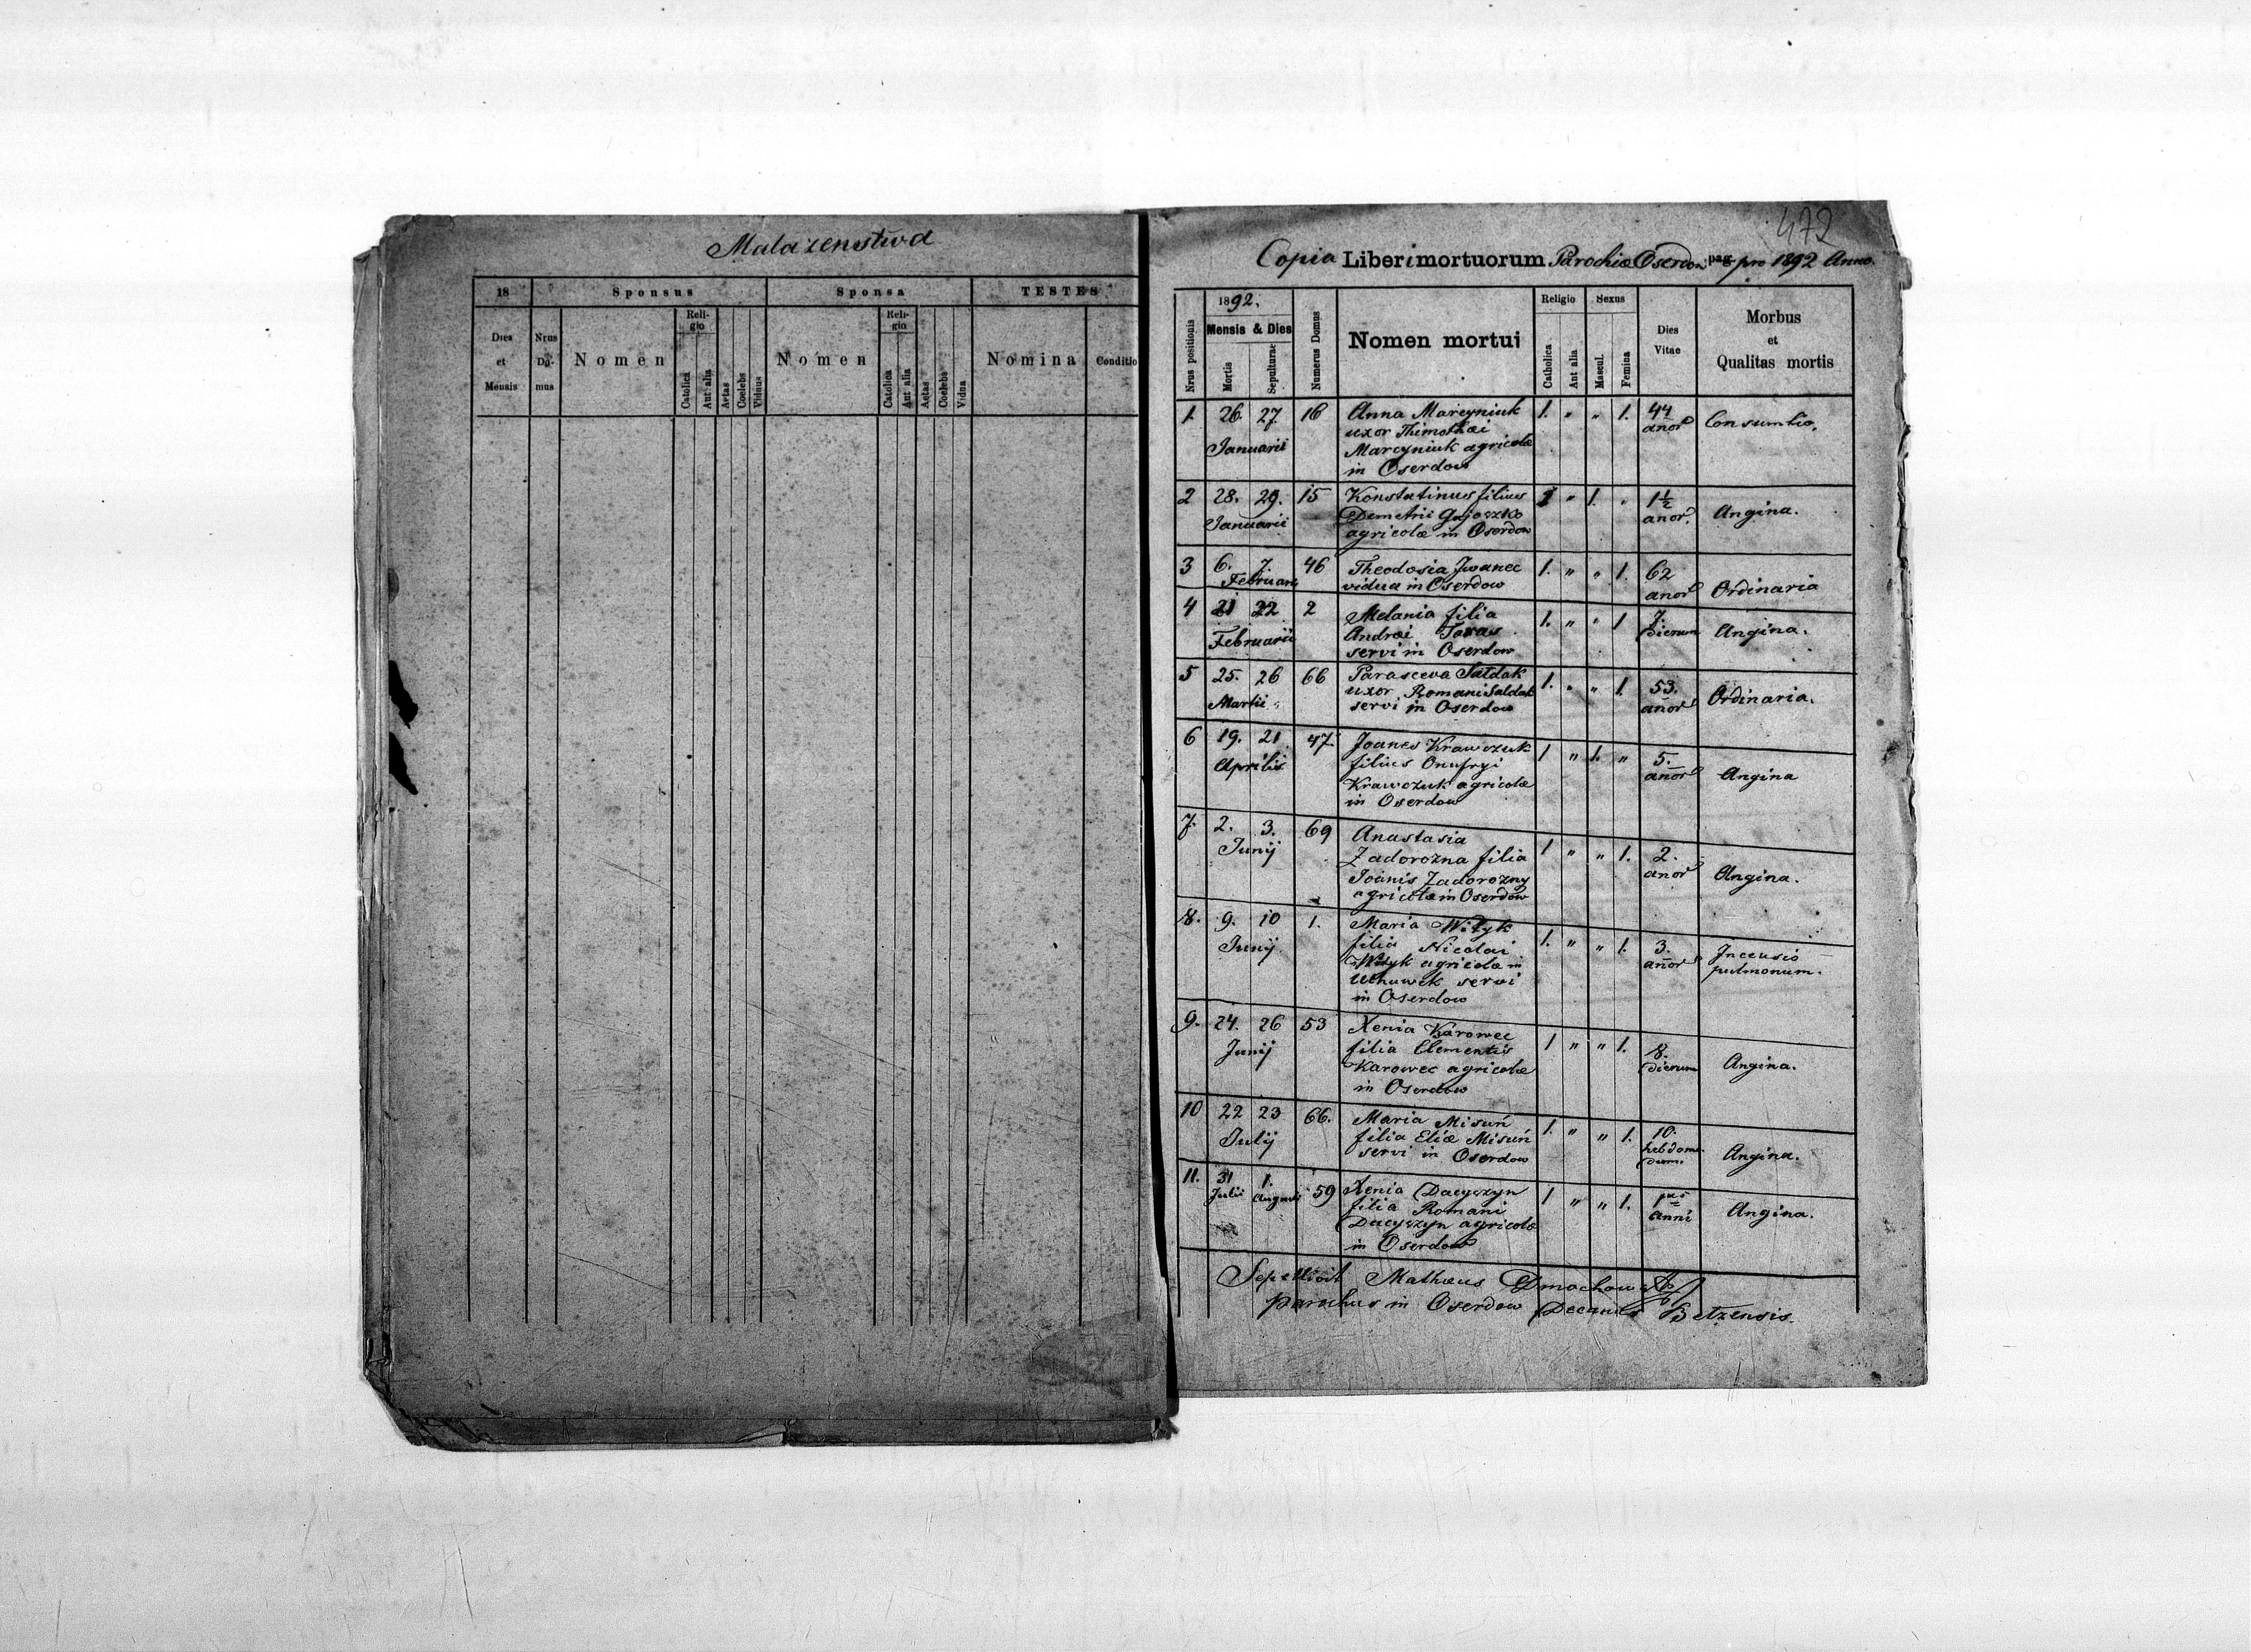 Malazenstwa
18 Sponsus Sponsa TESTES
Dies et Mensis
Nrus Do- mus
Nomen
Reli- gio
Catolica
Aut alia
Aetas
Coelebs
Viduus
Nomen
Reli- gio
Catolica
Aut alia
Aetas
Coelebs
Vidua
Nomina
Conditio
472
Copia Liber i mortuorum Parochiæ Oserdow pag. pro 1892 Anno.
Nrus positionis
1892.
Mensis & Dies
Mortis
Sepulturae
Numerus Domus
Nomen mortui
Religio
Catholica
Aut alia
Sexus
Mascul.
Femina
Dies Vitae
Morbus
et
Qualitas mortis
1 26. 27. 16 Anna Marcyniuk 1. " " 1. 44 Consumtio.
uxor Thimothæi anor
Januarii Marcyniuk agricolæ
in Oserdow
2 28. 29. 15 Konstatinus filius 1 " 1. " 1½ Angina.
Januarii Demetrii anor.
agricolæ in Oserdow
3 6. 7. 46 Theodosia Iwanec 1. " " 1. 62 Ordinaria
Februarii vidua in Oserdow anor
4 21 22 2 Melania filia 1. " " 1 7. Angina.
Februarii Andrei Taras Dierum
servi in Oserdow
5 25. 26 66 Parasceva Saldak 1. " " 1. 53. Ordinaria.
uxor Romani Saldak anor
Martii servi in Oserdow
6 19. 21 47 Joanes Krawczuk 1 " 1. " 5. Angina
Aprilis filius Onufryi anor
Krawczuk agricolæ
in Oserdow
7. 2. 3. 69 Anastasia 1 " " 1. 2. Angina.
Junij Zadorozna filia anor
Joanis Zadorozny
agricolæ in Oserdow
8. 9. 10 1. Maria Wityk 1. " " 1. 3. Incensio
Junij filia Nicolai anor pulmonum.
Wityk agricolæ in
Uhnuwek servi
in Oserdow
9. 24. 26 53 Xenia Karowec 1 " " 1. 8. Angina.
Junij filia Clementis dierum
Karowec agricolæ
in Oserdow
10 22 23 66. Maria Misuń 1. " " 1. 10. Angina.
Julij filia Eliæ Misuń hebdoma-
servi in Oserdow dum.
11. 31 1. 59 Xenia Dacyszyn 1 " " 1. Angina.
Julii Augusti filia Romani anni
Dacyszyn agricolæ
in Oserdow
Sepellivit Mathæus Dmochowski
parochus in Oserdow Decanus Betzensis.